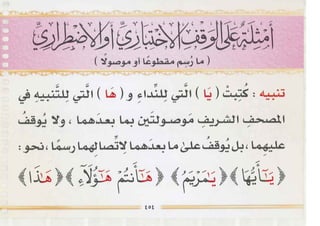 أمثلة على الوقف الاختباري أو الاضطراري
( ما رُسم مقطوعًا أو موصولًا )
تنبيه : كُتِبتْ ( يَا ) الَّتي لِلنِّداءِ و ( هَا ) الَّتي لِلتَّنبيهِ في
المصحفِ الشريفِ مَوصولَتَين بما بعدَهما ، ولا يُوقفُ
عليهما ، بل يُوقفُ علىٰ ما بعدَهما لِاتِّصالِهما رسمًا ، نحو :
﴿ يَـٰٓأَيُّهَا ﴾ ﴿ يَـٰمَرْيَمُ ﴾ ﴿ هَـٰٓأَنتُمْ هَـٰٓؤُلَآءِ ﴾ ﴿ هَـٰذَا ﴾
٤٥٤